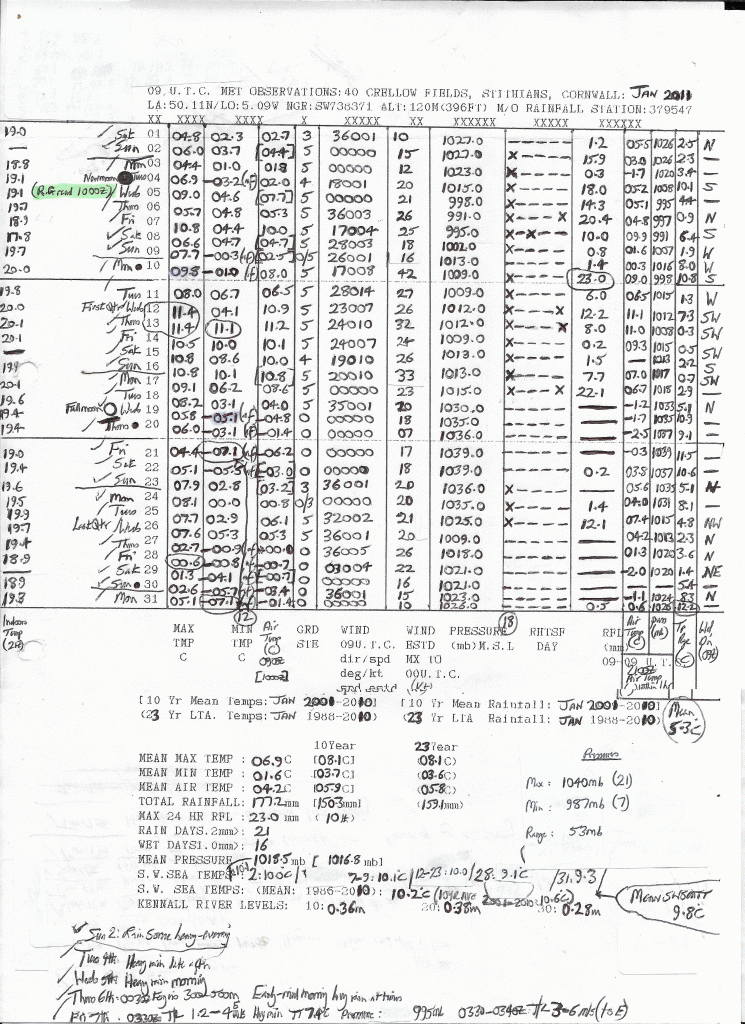 09 U.T.C. MET OBSERVATIONS:40 CRELLOW FIELDS, STITHIANS, CORNWALL: JAN 2011
LA:50.11N/LO:5.09W NGR:SW738371 ALT:120M(396FT) M/O RAINFALL STATION:379547
XX XXXX XXXX X XXXXX XX XXXXXX XXXXX XXXXXX
19.0 Sat 01 04.8 02.3 02.7 3 36001 10 1027.0 1.2 05.5 1026 2.5 N
Sun 02 06.0 03.7 [04.4] 5 00000 15 1027.0 X 15.9 03.0 1026 2.3
18.8 Mon 03 04.4 01.0 01.8 5 00000 12 1023.0 X 0.3 1020 3.4
19.1 New moon Tues 04 06.9 -03.2 02.0 4 18001 20 1015.0 X 18.0 05.2 1008 10.1 S
19.1 (R.G read 1000Z) Wed 05 09.0 04.6 [07.7] 5 00000 21 998.0 X 14.3 05.1 995 4.4
19.7 Thu 06 05.7 04.8 05.3 5 36003 26 991.0 X X 20.4 04.8 997 0.9 N
18.9 Fri 07 10.8 04.4 00.0 5 17004 25 995.0 X X 10.0 09.9 991 6.4 S
17.8 Sat 08 06.6 04.7 [04.7] 5 28003 18 1002.0 0.8 01.6 1007 1.9 W
19.7 Sun 09 07.7 -00.3 0/5 26001 16 1013.0 1.4 00.3 1016 8.0 W
20.0 Mon 10 09.8 -01.0 08.0 5 17008 42 1009.0 X 23.0 09.0 998 10.8 S
19.8 Tues 11 08.0 06.7 06.5 5 28014 27 1009.0 X 6.0 06.5 1015 1.3 W
20.0 First Qtr Wed 12 11.4 04.1 10.9 5 23007 26 1012.0 X X 12.2 11.1 1012 7.3 SW
20.1 Thu 13 11.4 11.1 11.2 5 24010 32 1012.0 X X 8.0 11.0 1008 0.3 SW
Fri 14 10.5 10.0 10.1 5 24007 24 1009.0 X 0.2 09.3 1015 0.5 SW
Sat 15 10.8 08.6 10.0 4 19010 26 1013.0 X 1.5 1013 2.2 S
Sun 16 10.8 10.1 [10.8] 5 20010 33 1013.0 X 7.7 07.0 1017 0.7 SW
20.1 Mon 17 09.1 06.2 08.6 5 00000 23 1015.0 X X 22.1 06.7 1018 2.9
19.6 Tues 18 08.2 03.1 04.0 5 35001 20 1030.0 -1.2 1033 5.1 N
19.4 Full moon Wed 19 05.8 -05.1 -04.8 0 00000 18 1035.0 -1.7 1035 10.9
19.4 Thu 20 06.0 -03.1 -01.4 0 00000 07 1036.0 -2.5 1037 9.1
19.0 Fri 21 04.4 -07.1 -06.2 0 00000 17 1039.0 -0.3 1039 11.5
19.4 Sat 22 05.1 -05.5 -03.0 0 00000 18 1039.0 0.2 03.8 1037 10.6
19.6 Sun 23 07.9 02.8 [03.2] 3 36001 20 1036.0 X 05.6 1035 5.1 N
19.5 Mon 24 08.1 00.0 00.8 0/3 00000 20 1035.0 X 1.4 04.0 1031 8.1
19.9 Tues 25 07.7 02.9 06.1 5 32002 21 1025.0 X 12.1 07.4 1015 4.8 NW
19.7 Last Qtr Wed 26 07.7 05.3 05.3 5 36001 20 1009.0 04.2 1013 2.3 N
19.4 Thu 27 02.7 -00.9 -00.0 0 36005 26 1018.0 01.3 1020 3.6 N
18.9 Fri 28 00.6 -00.8 0 03004 22 1021.0 -2.0 1020 1.4 NE
Sat 29 01.3 -04.1 -00.7 0 00000 16 1021.0
18.9 Sun 30 02.6 -05.7 -03.4 0 36001 15 1023.0 -1.1 1024 8.3 N
19.3 Mon 31 05.1 -07.1 -01.4 0 00000 10 1026.0 0.5 0.6 1026 12.2
12 18
Indoor Temp MAX MIN Air GRD WIND WIND PRESSURE RHTSF RFL Air
TMP TMP Temp STE 09U.T.C. ESTD (mb)M.S.L DAY (mm)
C C 0900Z dir/spd MX TO 09-09 U.T.C.
[1000Z] deg/kt 00U.T.C.
spd estd (Kt)
[10 Yr Mean Temps: JAN 2001-2010] [10 Yr Mean Rainfall: JAN 2001-2010]
(23 Yr LTA. Temps: JAN 1988-2010) (23 Yr LTA Rainfall: JAN 1988-2010)
Mean 5.3C
10Year 23Year
MEAN MAX TEMP : 06.9C [08.1C] (08.1C)
MEAN MIN TEMP : 01.6C [03.7C] (03.6C)
MEAN AIR TEMP : 04.2C [05.9C] (05.8C)
TOTAL RAINFALL: 177.2mm [150.3mm] (159.1mm)
MAX 24 HR RFL : 23.0 mm (10th)
RAIN DAYS.2mm): 21
WET DAYS1.0mm): 16
MEAN PRESSURE 1018.5 mb [ 1016.8 mb]
Pressures
Max: 1040mb (21)
Min: 987mb (7)
Range: 53mb
S.W. SEA TEMPS: 2:10.0C 7-9:10.1C /12-23:10.0/28: 9.1C /31.9.3/
S.W. SEA TEMPS: (MEAN: 1986-2010): 10.2C (10YR AVE 2001-2010 10.6C)
MEAN SW SEA TT 9.8C
KENNALL RIVER LEVELS: 10: 0.36m 20: 0.38m 30: 0.28m
Sun 2: Rain some heavy-evening
Tues 4th Heavy rain late
Wed 5th Heavy rain morning
Thu 6th: 0030Z Fog no 300-500m Early-mid morning hvy rain at times
Fri 7th. 0330Z 1.2-4 Hvy rain Pressure: 995mb 0330-0340Z 3-6 m/s (to E)